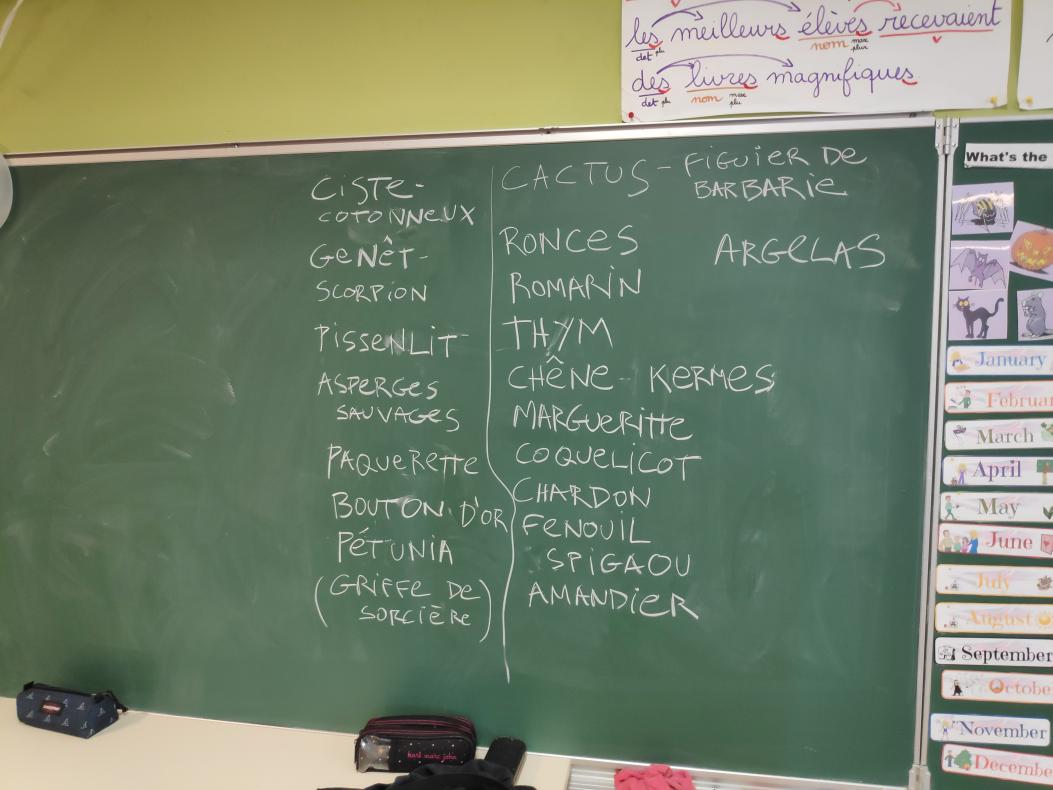 les meilleurs élèves recevaient
det plu nom masc plur
des livres magnifiques
det plu nom masc plu
CISTE-
COTONNEUX
GENÊT-
SCORPION
PISSENLIT
ASPERGES
SAUVAGES
PAQUERETTE
BOUTON D'OR
PÉTUNIA
(GRIFFE DE
SORCIÈRE)
CACTUS - FIGUIER DE
BARBARIE
RONCES ARGELAS
ROMARIN
THYM
CHÊNE KERMES
MARGUERITTE
COQUELICOT
CHARDON
FENOUIL
SPIGAOU
AMANDIER
What's the
January
Februar
March
April
May
June
July
August
September
Octobe
November
Decembe
karl marc john